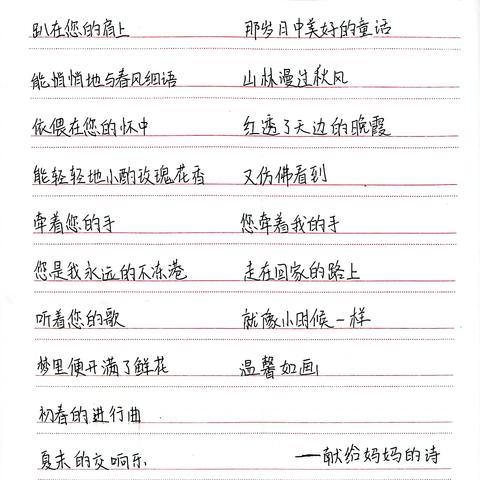 趴在您的肩上
能悄悄地与春风细语
依偎在您的怀中
能轻轻地小酌玫瑰花香
牵着您的手
您是我永远的不冻港
听着您的歌
梦里便开满了鲜花
初春的进行曲
夏末的交响乐
那岁月中美好的童话
山林漫过秋风
红透了天边的晚霞
又仿佛看到
您牵着我的手
走在回家的路上
就像小时候一样
温馨如画
——献给妈妈的诗